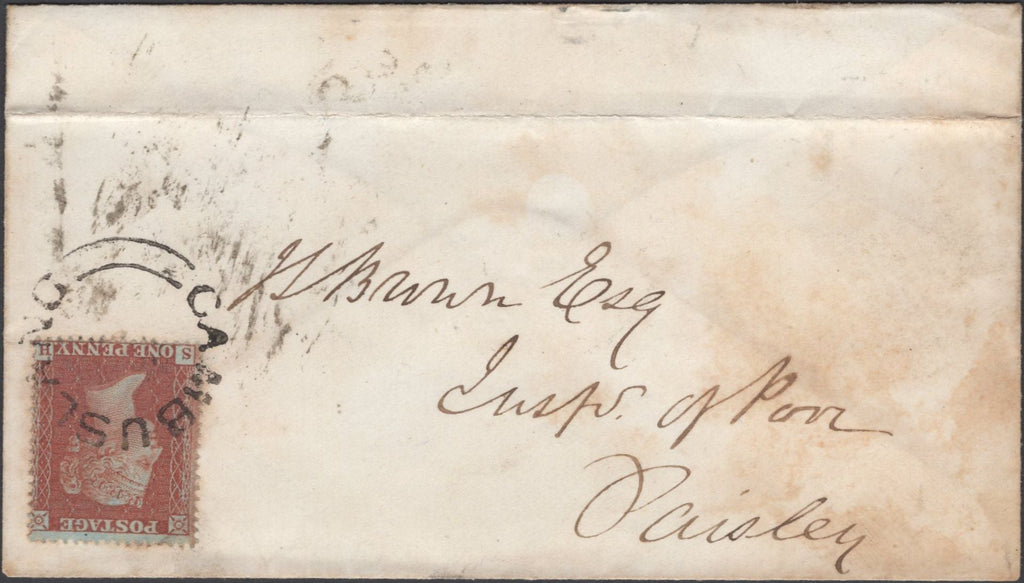 J S Brown Esq
Inspr. of Poor
Paisley
CAMBUSLANG
POSTAGE
S H
ONE PENNY